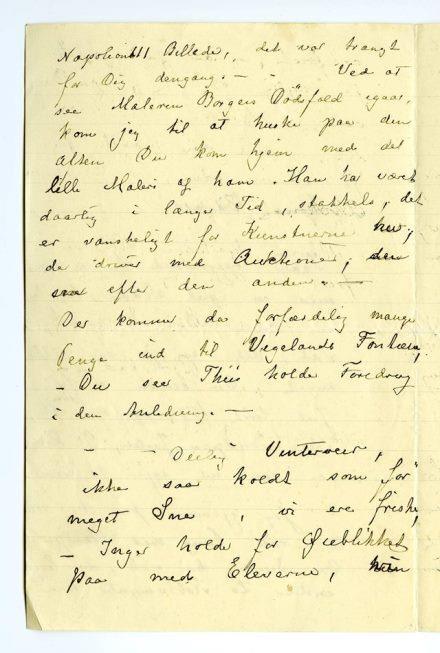 Napoleon III Billede, det var trangt
for Dig dengang. – – Ved at
see Maleren Borgens Dødsfald igaar,
kom jeg til at huske paa den
Aften Du kom hjem med det
lille Maleri af ham. Han har været
daarlig i længre Tid, stakkels, det
er vanskeligt for Kunstnerne nu,
de driver med Auktioner, den
efter den anden. –
Der kommer da forfærdelig mange
Penge ind til Vegelands Fontæne,
– Du seer Thiis holde Foredrag
i den Anledning. –
– – Deilig Vinterveir,
ikke saa koldt som før
meget Sne, vi ere friske,
– Inger holde for Øieblikket
paa med Eleverne,